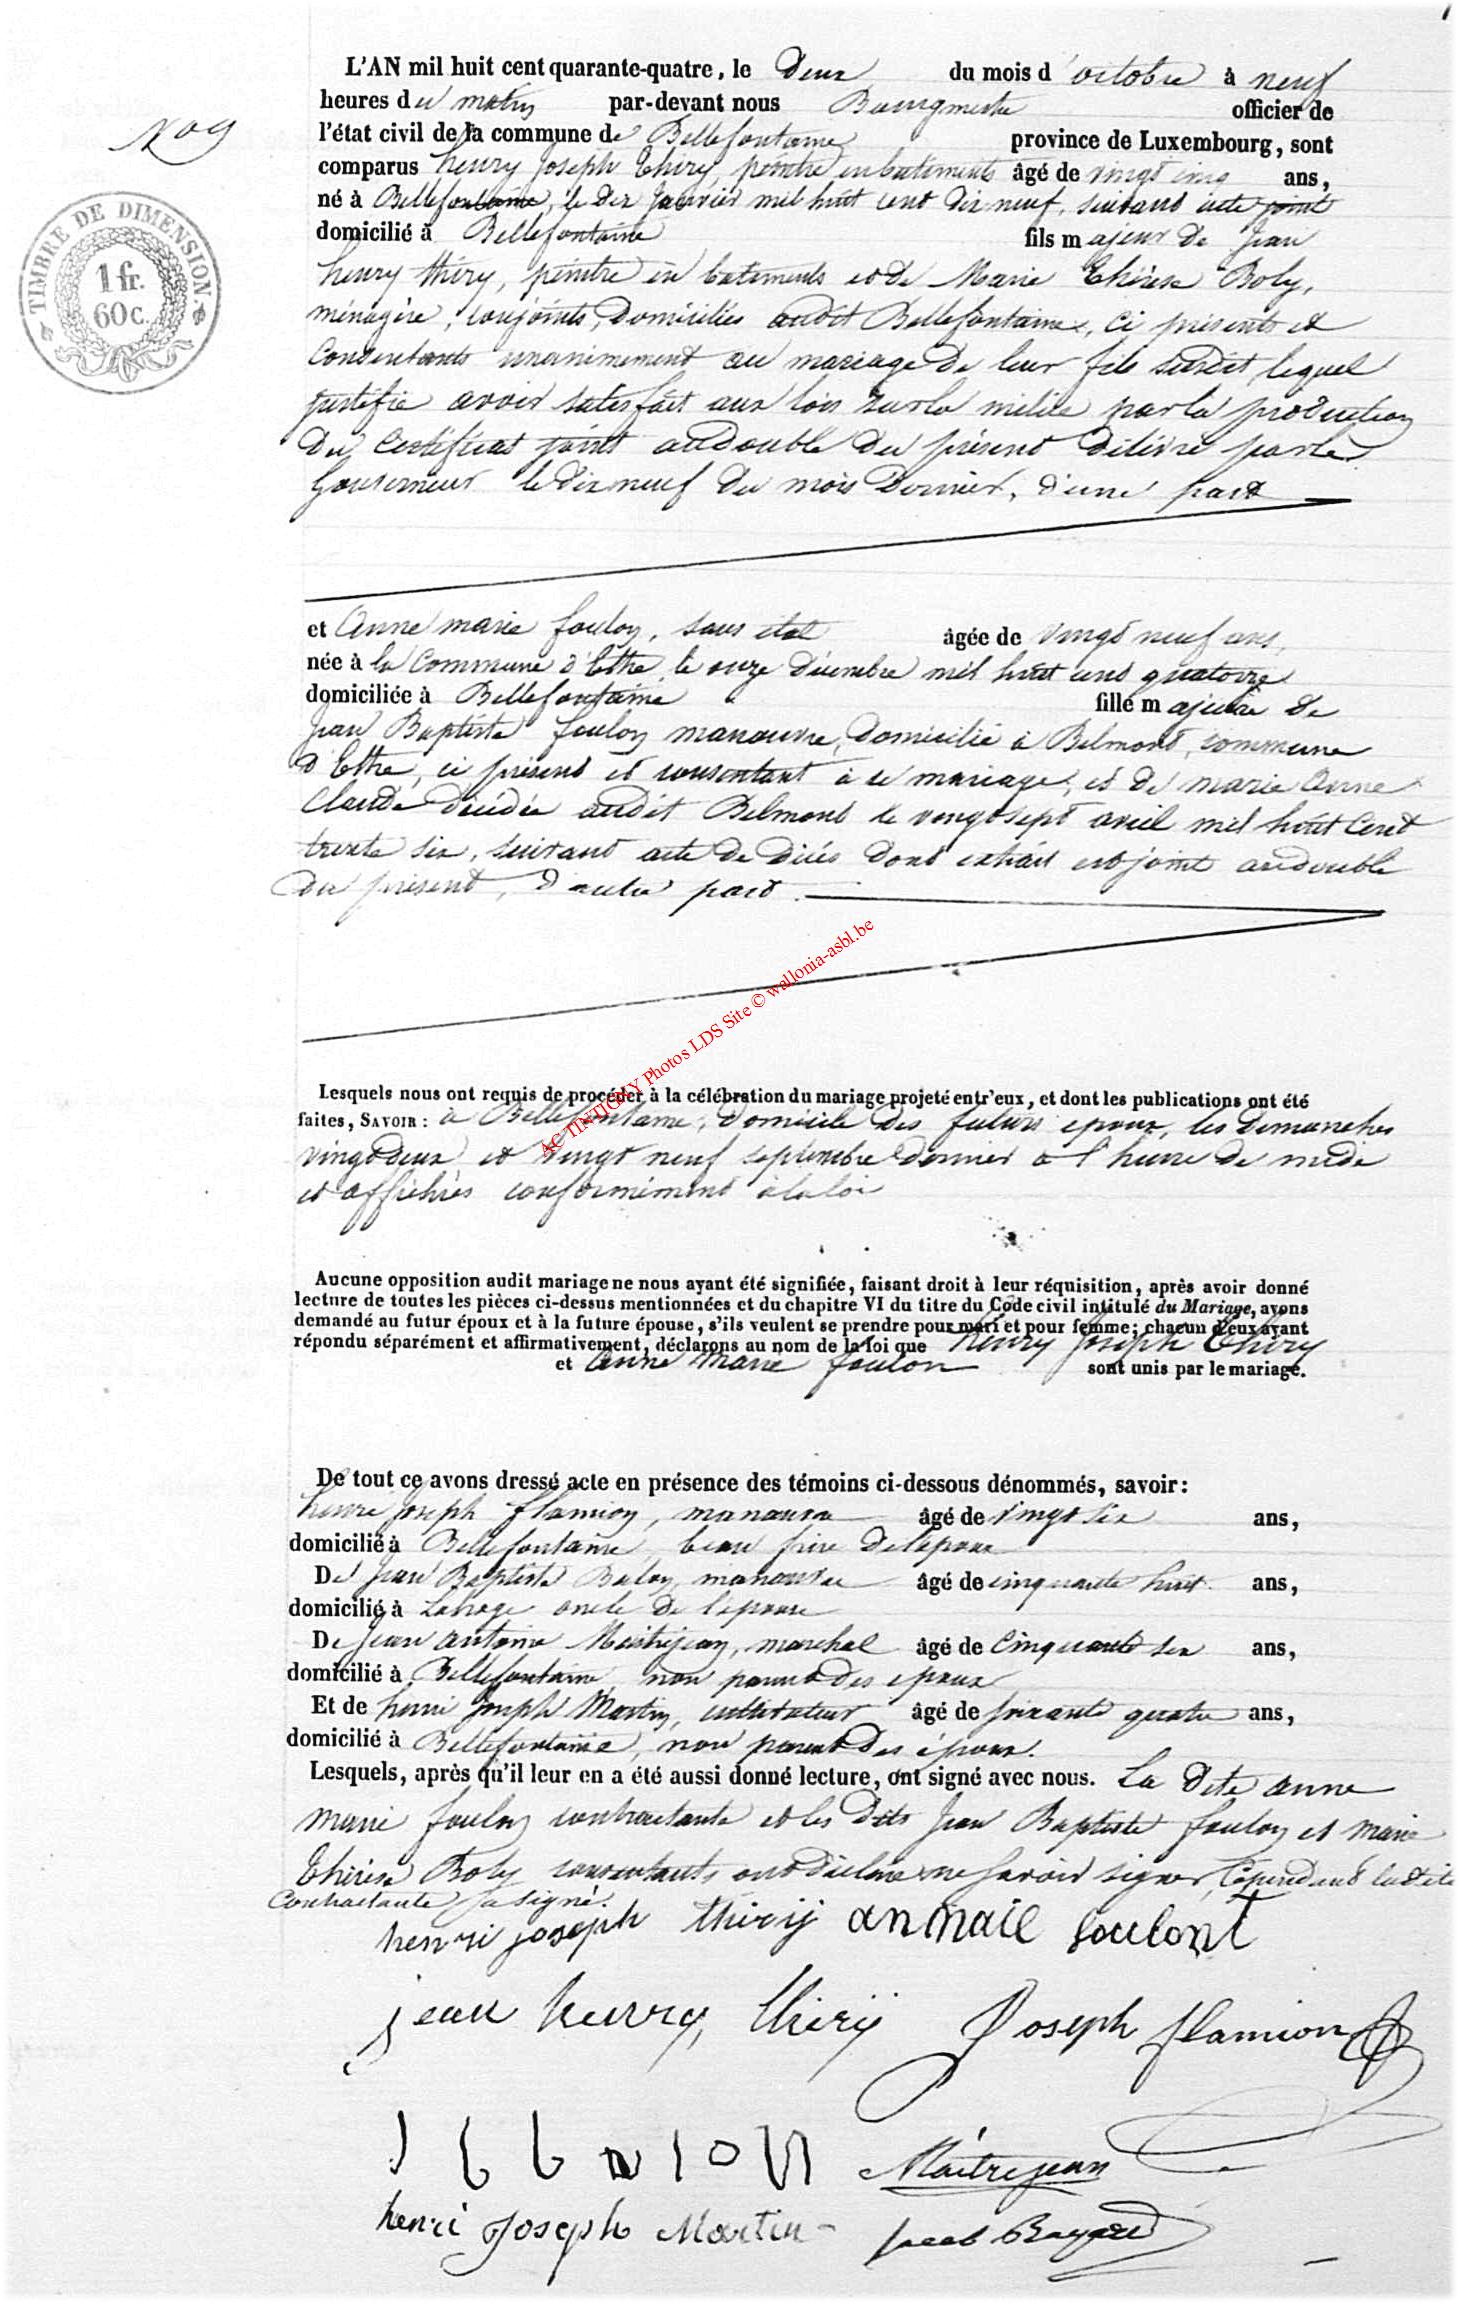 L'AN mil huit cent quarante-quatre, le deux du mois d'octobre à neuf
heures du matin par-devant nous Bourgmestre officier de
N° 9
l'état civil de la commune de Bellefontaine province de Luxembourg, sont
comparus henry Joseph Thiry, peintre en batiments âgé de vingt cinq ans,
né à Bellefontaine, le dix Janvier mil huit cent dix neuf, suivant acte joint
domicilié à Bellefontaine fils majeur de Jean
henry thiry, peintre en batiments et de Marie Thérèse Boly,
ménagère, conjoints, domiciliés audit Bellefontaine, ci présents et
consentants unanimement au mariage de leur fils susdit lequel
justifie avoir satisfait aux lois sur la milice par la production
du certificat joint au double du présent délivré par le
Gouverneur le dix neuf du mois dernier, d'une part
TIMBRE DE DIMENSION.
1 fr.
60 c.
et Anne marie foulon, sans état âgée de vingt neuf ans,
née à la Commune d'Ethe, le onze décembre mil huit cent quatorze
domiciliée à Bellefontaine fille majeure de
Jean Baptiste foulon manouvre, domicilié à Belmont, commune
d'Ethe, ci présent et consentant à ce mariage, et de marie Anne
Claude décédée audit Belmont le vingt sept avril mil huit Cent
trente six, suivant acte de décès dont extrait est joint au double
du présent, d'autre part.
ACTINTIGNY Photos LDS Site © wallonia-asbl.be
Lesquels nous ont requis de procéder à la célébration du mariage projeté entr'eux, et dont les publications ont été
faites, SAVOIR: à Bellefontaine, domicile des futurs epoux, les dimanches
vingt deux et vingt neuf septembre dernier à l'heure de midi
et affichées conformément à la loi
Aucune opposition audit mariage ne nous ayant été signifiée, faisant droit à leur réquisition, après avoir donné
lecture de toutes les pièces ci-dessus mentionnées et du chapitre VI du titre du Code civil intitulé du Mariage, avons
demandé au futur époux et à la future épouse, s'ils veulent se prendre pour mari et pour femme; chacun d'eux ayant
répondu séparément et affirmativement, déclarons au nom de la loi que henry Joseph Thiry
et Anne Marie foulon sont unis par le mariage.
De tout ce avons dressé acte en présence des témoins ci-dessous dénommés, savoir:
henri Joseph flamion, manouvre âgé de vingt six ans,
domicilié à Bellefontaine beau frère de l'epoux
De Jean Baptiste manouvre âgé de cinquante huit ans,
domicilié à oncle de l'epouse
De Jean antoine Maitrejean, marchal âgé de Cinquante six ans,
domicilié à Bellefontaine, non parent des epoux
Et de henri Joseph Martin, cultivateur âgé de soixante quatre ans,
domicilié à Bellefontaine, non parent des époux.
Lesquels, après qu'il leur en a été aussi donné lecture, ont signé avec nous. La dite anne
marie foulon contractante et les dits Jean Baptiste foulon et marie
Thérèse Boly consentants ont déclaré ne savoir signer, Cependant ladite
Contractante a signé.
henri joseph thiry anmaie foulont
jean henry thiry Joseph flamion
Maitrejean
henri Joseph Martin